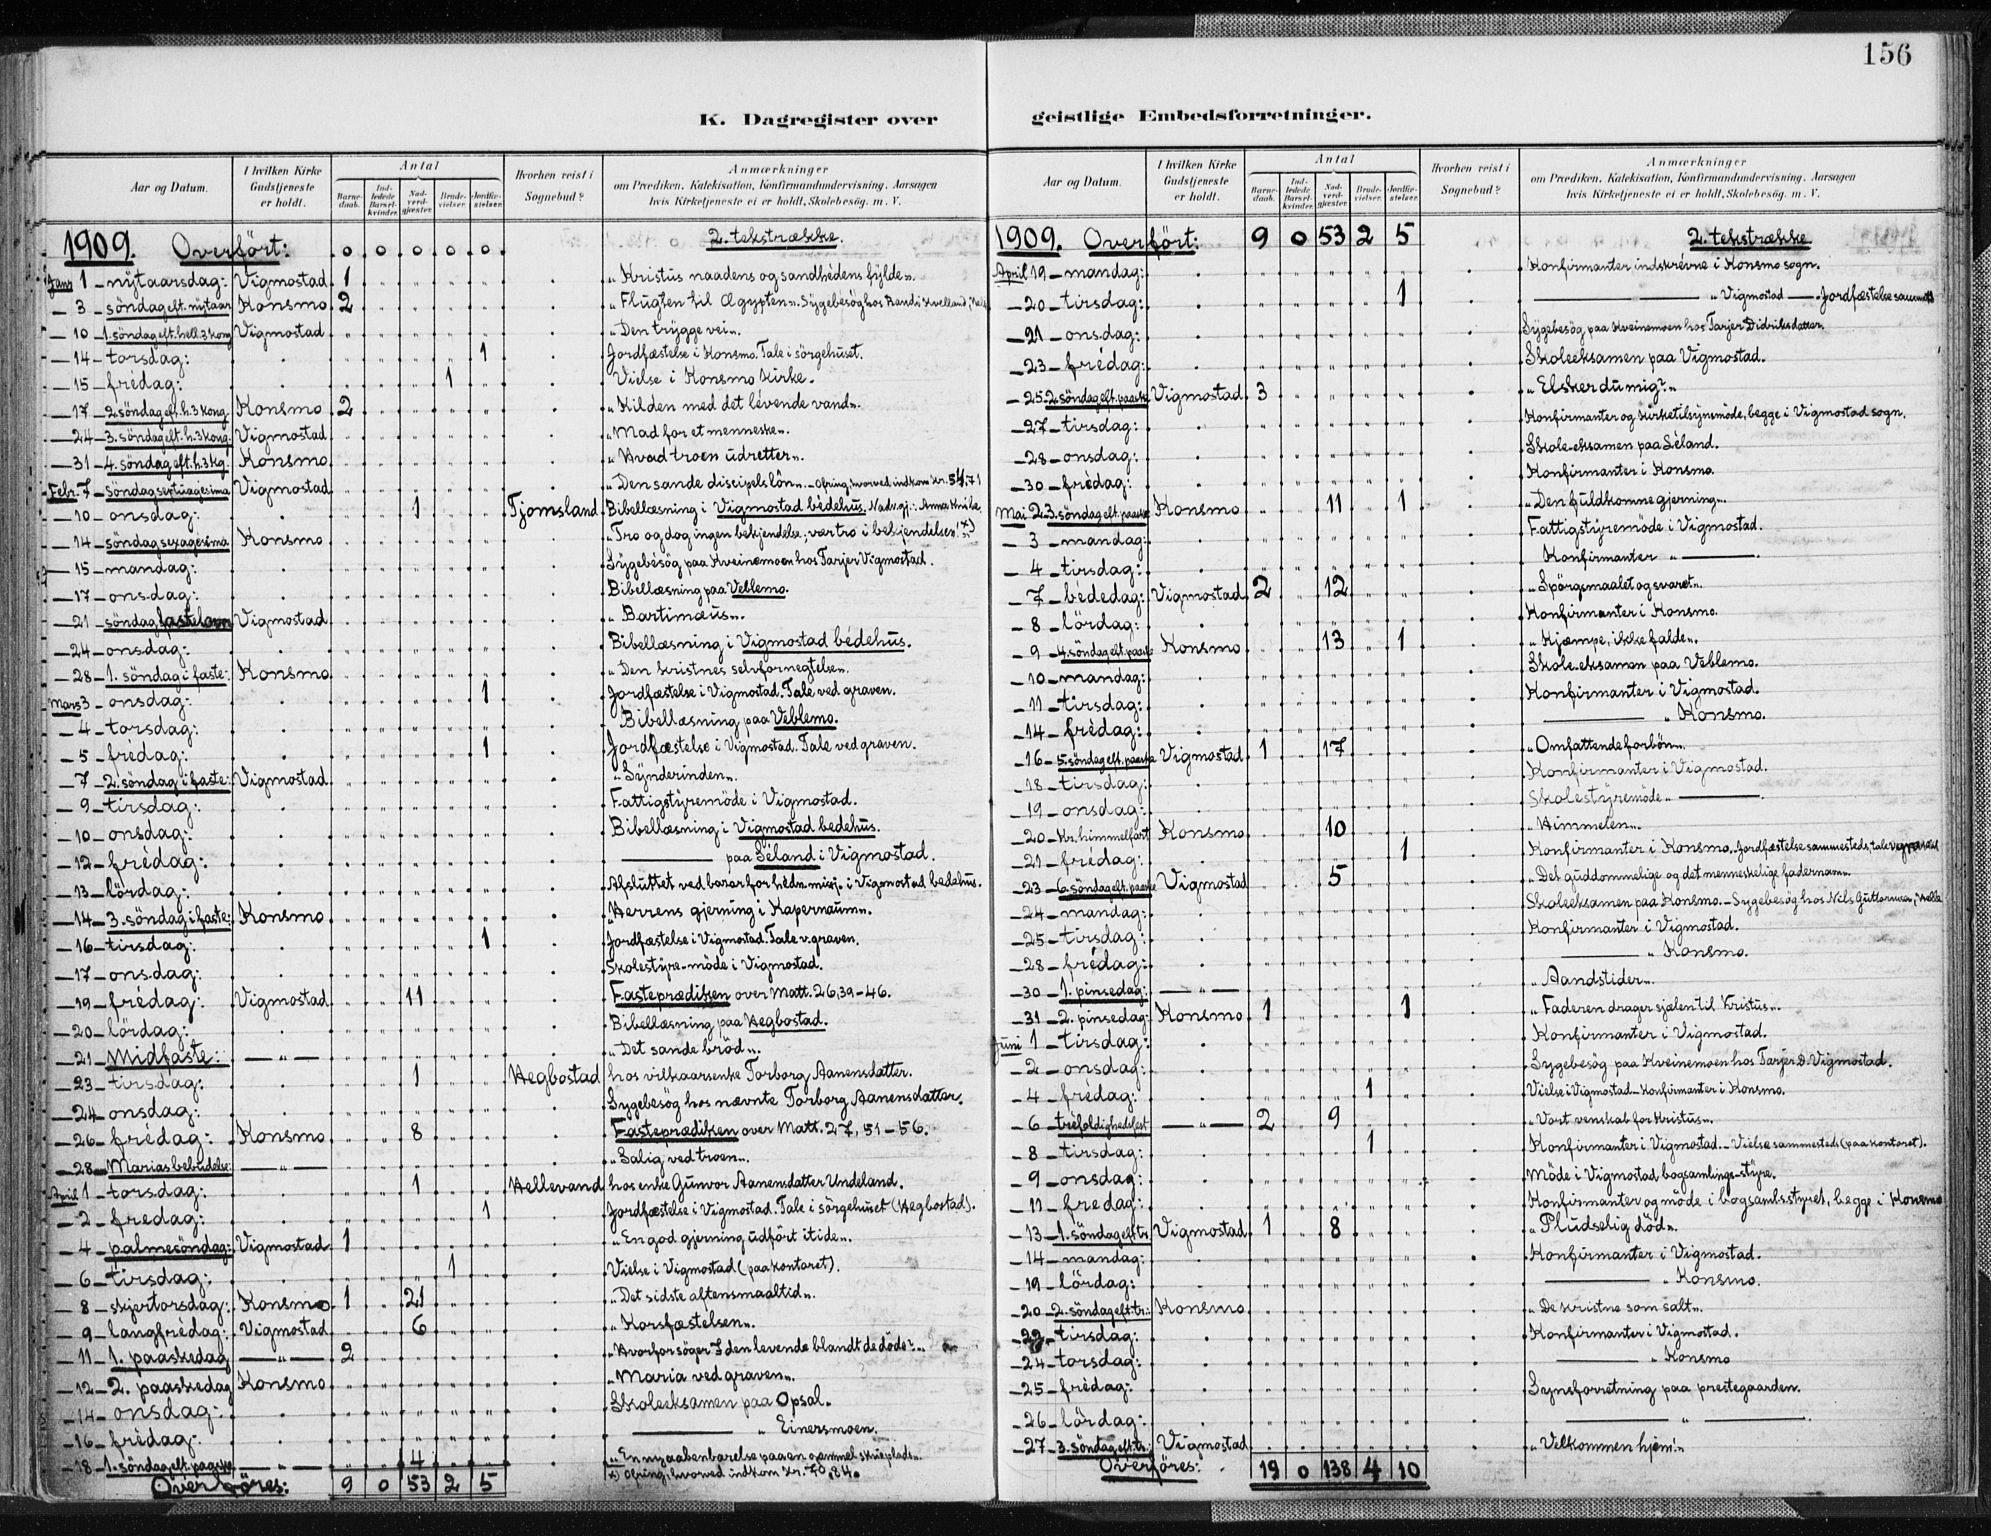 156
K. Dagregister over
geistlige Embedsforretninger.
Aar og Datum. I hvilken Kirke Gudstjeneste er holdt. Antal Barnedaab. Indledede Barselkvinder. Nadverdgjæster. Brudevielser. Jordfæstelser. Hvorhen reist i Sognebud? Anmærkninger om Prædiken, Katekisation, Konfirmandundervisning, Aarsagen hvis Kirketjeneste ei er holdt, Skolebesøg. m. V.
1909. Overført: 0 0 0 0 0 2. tekstrække.
Janr 1 - nytaarsdag: Vigmostad 1 "Kristus naadens og sandhedens fylde".
- 3 - söndag eft. nytaar Konsmo 2 "Flugten til Ægypten". Sygebesög hos
- 10 - 1. söndag eft. hell. 3 kong Vigmostad "Den trygge vei".
- 14 - torsdag: 1 Jordfæstelse i Konsmo. Tale i sörgehuset.
- 15 - frédag: 1 Vielse i Konsmo kirke.
- 17 - 2. söndag eft. h. 3 kong. Konsmo 2 "Kilden med det lévende vand".
- 24 - 3. söndag eft. h. 3 kong. Vigmostad "Mad for et menneske".
- 31 - 4. söndag eft. h. 3 kg. Konsmo "Hvad troen udretter".
Febr. 7 - Söndag septuagesima Vigmostad "Den sande discipels lön". - Ofring, hvorved indkom kr. 54,71
- 10 - onsdag: 1 Tjomsland Bibellæsning i Vigmostad bédehus. Nadv.gj.: Anna
- 14 - söndag sexagesima Konsmo "Tro og dog ingen bekjendelse, vær tro i bekjendelse". x)
- 15 - mandag: Sygebésög paa Kveinemoen hos Tarjer Vigmostad.
- 17 - onsdag: Bibellæsning paa Veblemo.
- 21 - söndag fastelavn Vigmostad "Bartimæus".
- 24 - onsdag: Bibellæsning i Vigmostad bédehus.
- 28 - 1. söndag i faste: Konsmo "Den kristnes selvfornegtelse".
Mars 3 - onsdag: 1 Jordfæstelse i Vigmostad. Tale ved graven.
- 4 - torsdag: Bibellæsning paa Veblemo.
- 5 - frédag: 1 Jordfæstelse i Vigmostad. Tale ved graven.
- 7 - 2. söndag i faste: Vigmostad "Synderinden".
- 9 - tirsdag: Fattigstyremöde i Vigmostad.
- 10 - onsdag: Bibellæsning i Vigmostad bedehus.
- 12 - frédag: — paa Séland i Vigmostad.
- 13 - lördag: Afsluttet ved basar for hédn. misj. i Vigmostad bedehus.
- 14 - 3. söndag i faste: Konsmo "Herrens gjerning i Kapernaum".
- 16 - tirsdag: 1 Jordfæstelse i Vigmostad. Tale v. graven.
- 17 - onsdag: Skolestyre-möde i Vigmostad.
- 19 - frédag: Vigmostad 11 Fasteprædiken over Matt. 26, 39-46.
- 20 - lördag: Bibellæsning paa Hegbostad.
- 21 - Midfaste: — " — "Det sande bröd".
- 23 - tirsdag: 1 Hegbostad hos vilkaarsenke Torborg Aanensdatter.
- 24 - onsdag: Sygebesög hos nævnte Torborg Aanensdatter.
- 26 - frédag: Konsmo 8 Fasteprædiken over Matt. 27, 51-56.
- 28 - Marias bebudelse: — " — "Salig ved troen".
April 1 - torsdag: 1 Hellevand hos enke Gunvor Aanensdatter Undeland.
- 2 - fredag: 1 Jordfæstelse i Vigmostad. Tale i sörgehuset (Hegbostad).
- 4 - palmesöndag: Vigmostad 1 "En god gjerning udfört i tide".
- 6 - tirsdag: 1 Vielse i Vigmostad (paa kontoret).
- 8 - skjertorsdag: Konsmo 1 21 "Det sidste aftensmaaltid".
- 9 - langfrédag: Vigmostad 6 "Korsfæstelsen".
- 11 - 1. paaskedag — " — 2 "Hvorfor söger I den levende blandt de döde?".
- 12 - 2. paaskedag Konsmo "Maria ved graven".
- 14 - onsdag: Skoleeksamen paa Opsal.
- 16 - frédag: — " Einersmoen.
- 18 - 1. söndag eft. paaske — " — 4 "En ny aabenbarelse paa en gammel skueplads".
Overföres: 9 0 53 2 5 x) Ofring, hvorved indkom kr. 70,84.
Aar og Datum. I hvilken Kirke Gudstjeneste er holdt. Antal Barnedaab. Indledede Barselkvinder. Nadverdgjæster. Brudevielser. Jordfæstelser. Hvorhen reist i Sognebud? Anmærkninger om Prædiken, Katekisation, Konfirmandundervisning, Aarsagen hvis Kirketjeneste ei er holdt, Skolebesøg. m. V.
1909. Overfört: 9 0 53 2 5 2. tekstrække
April 19 - mandag: Konfirmanter indskrévne i Konsmo sogn.
- 20 - tirsdag: 1 — " Vigmostad — Jordfæstelse
- 21 - onsdag: Sygebesög paa Kveinemoen hos Tarjer Didriksdatter.
- 23 - frédag: Skoleeksamen paa Vigmostad.
- 25 - 2. söndag eft. paaske Vigmostad 3 "Elsker du mig?"
- 27 - tirsdag: Konfirmanter og kirketilsynsmöde, begge i Vigmostad sogn.
- 28 - onsdag: Skole-eksamen paa Séland.
- 30 - frédag: Konfirmanter i Konsmo.
Mai 2 - 3. söndag eft. paaske Konsmo 11 1 "Den fuldkomne gjerning".
- 3 - mandag: Fattigstyremöde i Vigmostad.
- 4 - tirsdag: Konfirmanter " —
- 7 - bededag: Vigmostad 2 12 "Spörgsmaalet og svaret".
- 8 - lördag: Konfirmanter i Konsmo.
- 9 - 4. söndag eft. paaske Konsmo 13 1 "Kjæmpe, ikke falde".
- 10 - mandag: Skole-eksamen paa Veblemo.
- 11 - tirsdag: Konfirmanter i Vigmostad.
- 14 - frédag: — " Konsmo.
- 16 - 5. söndag eft. paaske Vigmostad 1 17 "Omfattende forbön".
- 18 - tirsdag: Konfirmanter i Vigmostad.
- 19 - onsdag: Skolestyremöde " —
- 20 - Kr. himmelfart Konsmo 10 "Himmelen".
- 21 - fredag: 1 Konfirmanter i Konsmo. Jordfæstelse sammesteds, tale
- 23 - 6. söndag eft. paaske Vigmostad 5 "Det guddommelige og det menneskelige fadernavn".
- 24 - mandag: Skoleeksamen paa Konsmo. - Sygebesög hos Nils
- 25 - tirsdag: Konfirmanter i Vigmostad.
- 28 - frédag: — " Konsmo.
- 30 - 1. pinsedag: — " — "Aandstider".
- 31 - 2. pinsedag: Konsmo 1 1 "Faderen drager sjælen til Kristus".
Juni 1 - tirsdag: Konfirmanter i Vigmostad.
- 2 - onsdag: Sygebesög paa Kveinemoen hos Tarjer D. Vigmostad.
- 4 - frédag: 1 Vielse i Vigmostad - Konfirmanter i Konsmo.
- 6 - tréfoldighedsfest — " — 2 9 "Vort venskab for Kristus".
- 8 - tirsdag: 1 Konfirmanter i Vigmostad. - Vielse sammesteds (paa kontoret).
- 9 - onsdag: Möde i Vigmostad bogsamlings-styre.
- 11 - fredag: Konfirmanter og möde i bogsamls.styret, begge i Konsmo
- 13 - 1. söndag eft. tr. Vigmostad 1 8 "Pludselig död".
- 14 - mandag: Konfirmanter i Vigmostad.
- 19 - lördag: — " Konsmo.
- 20 - 2. söndag eft. tr.: Konsmo "De kristne som salt".
- 22 - tirsdag: Konfirmanter i Vigmostad.
- 24 - torsdag: — " Konsmo
- 25 - frédag: Synsforretning paa prestegaarden.
- 26 - lördag: — " —
- 27 - 3. söndag eft. tr.: Vigmostad "Velkommen hjem!"
Overföres: 19 0 138 4 10